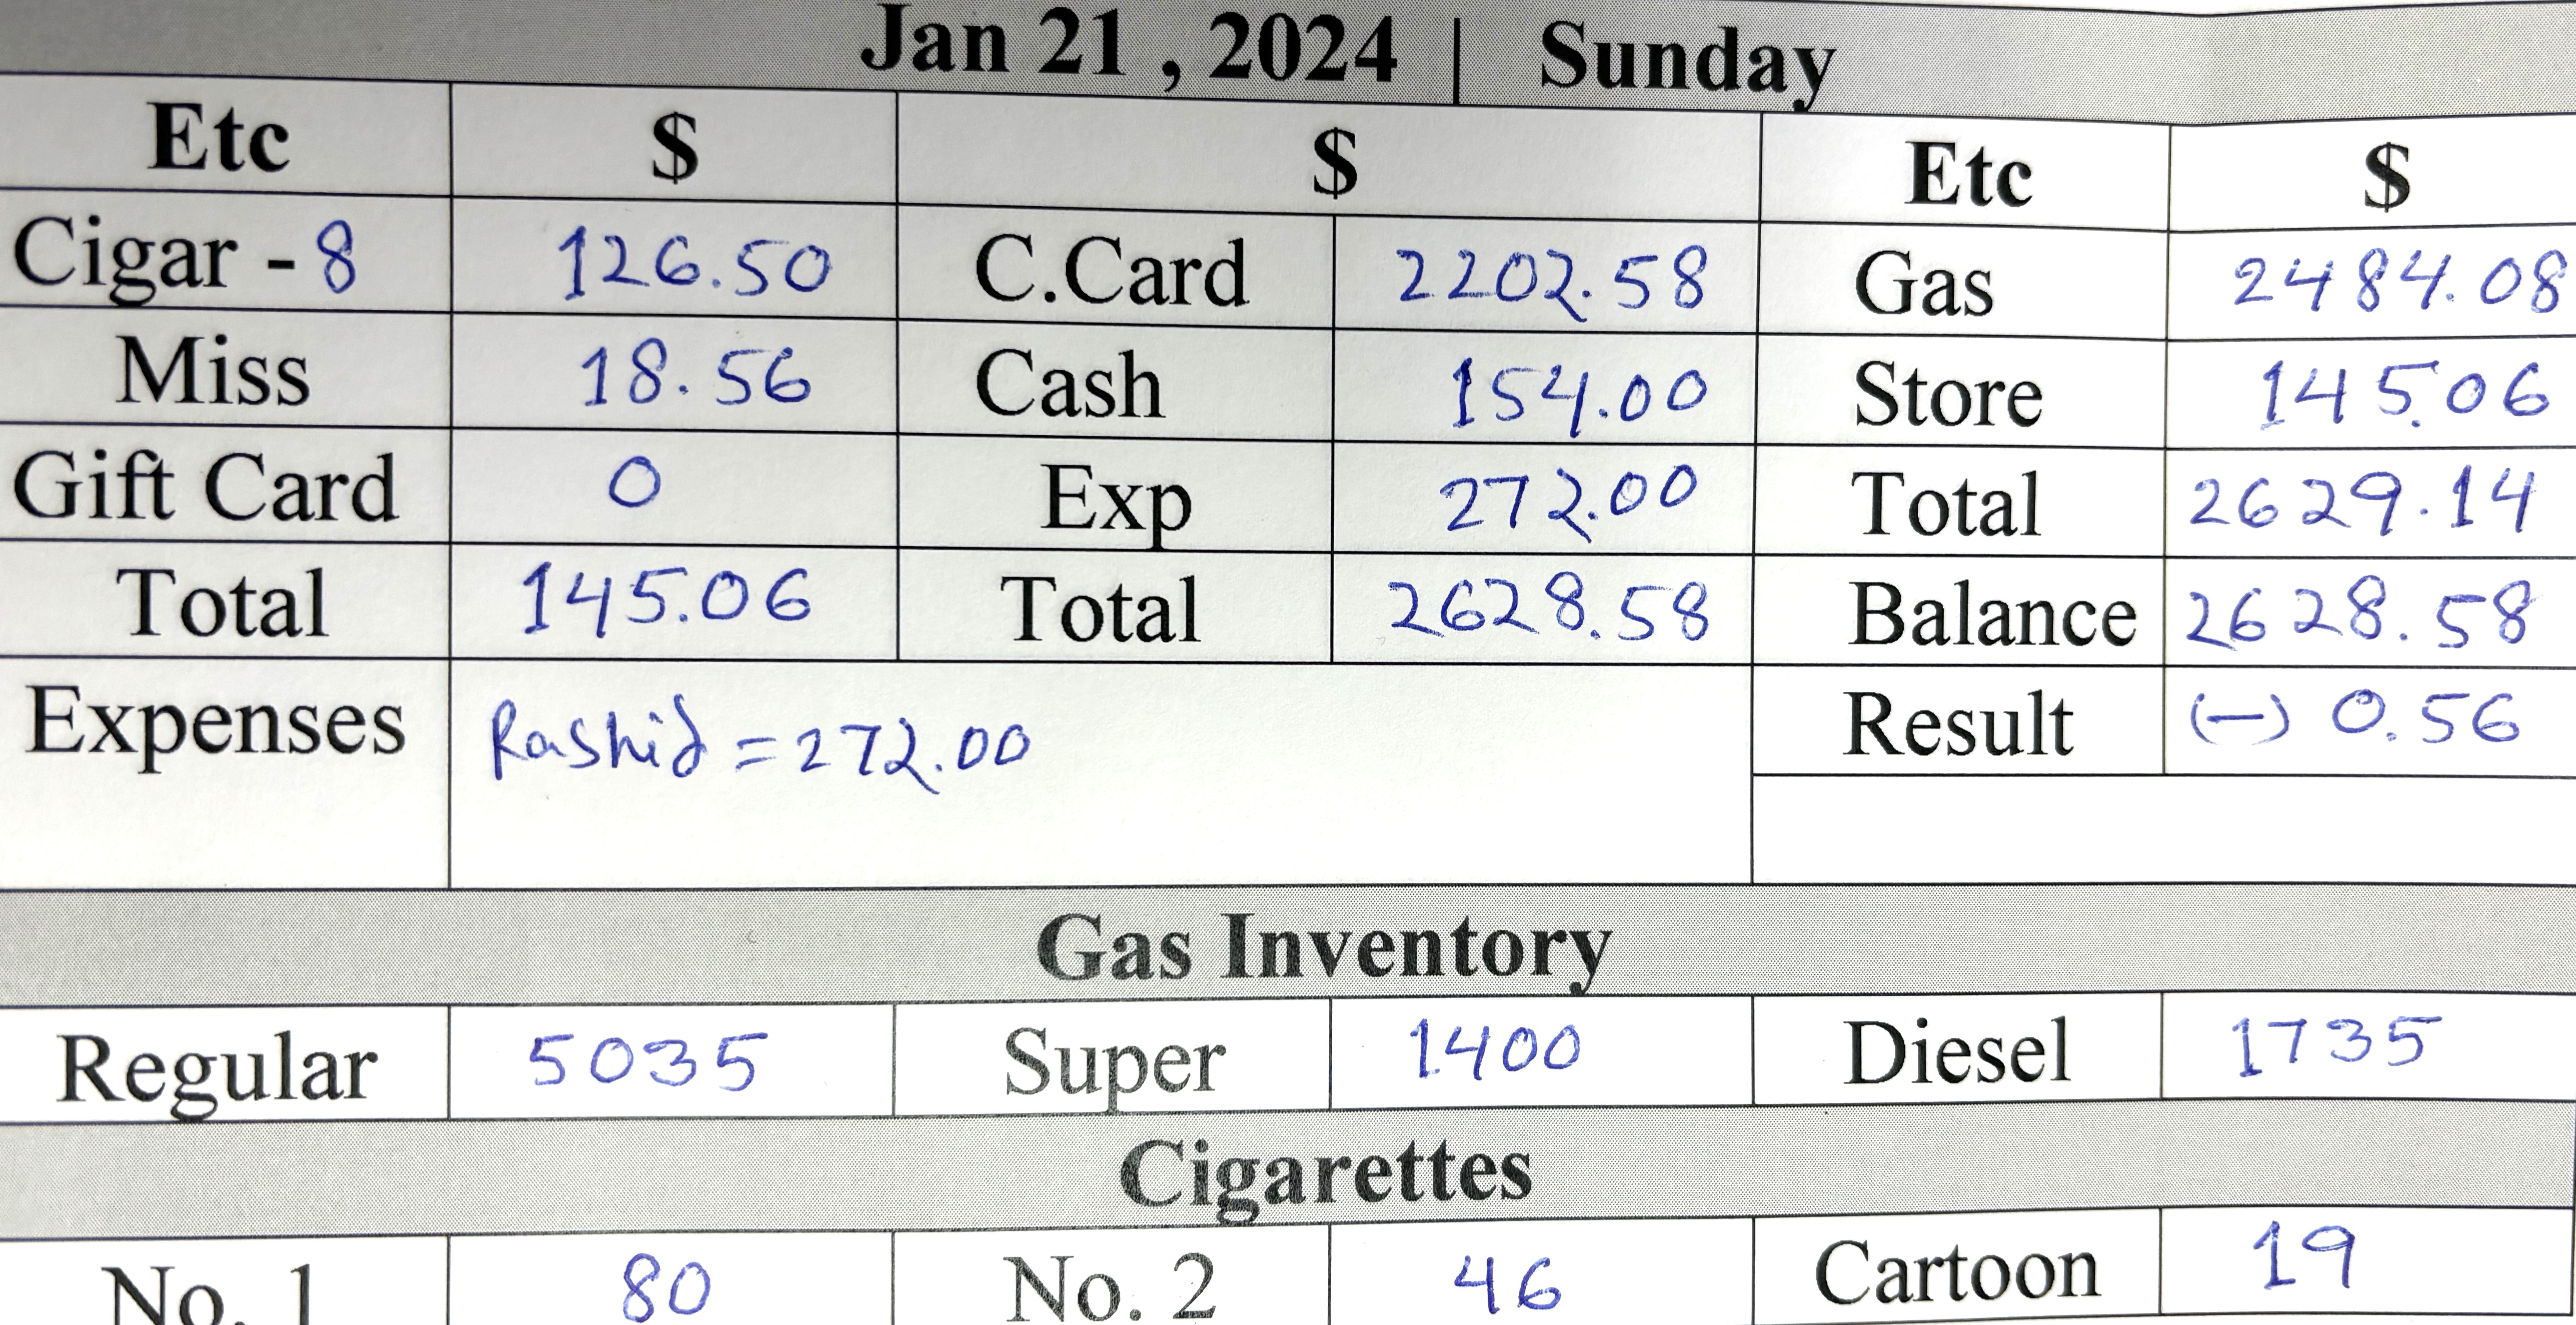 Jan 21 , 2024 | Sunday
Etc $ $ Etc $
Cigar - 8 126.50 C.Card 2202.58 Gas 2484.08
Miss 18.56 Cash 154.00 Store 145.06
Gift Card 0 Exp 272.00 Total 2629.14
Total 145.06 Total 2628.58 Balance 2628.58
Expenses Rashid = 272.00 Result (-) 0.56
Gas Inventory
Regular 5035 Super 1400 Diesel 1735
Cigarettes
No. 1 80 No. 2 46 Cartoon 19